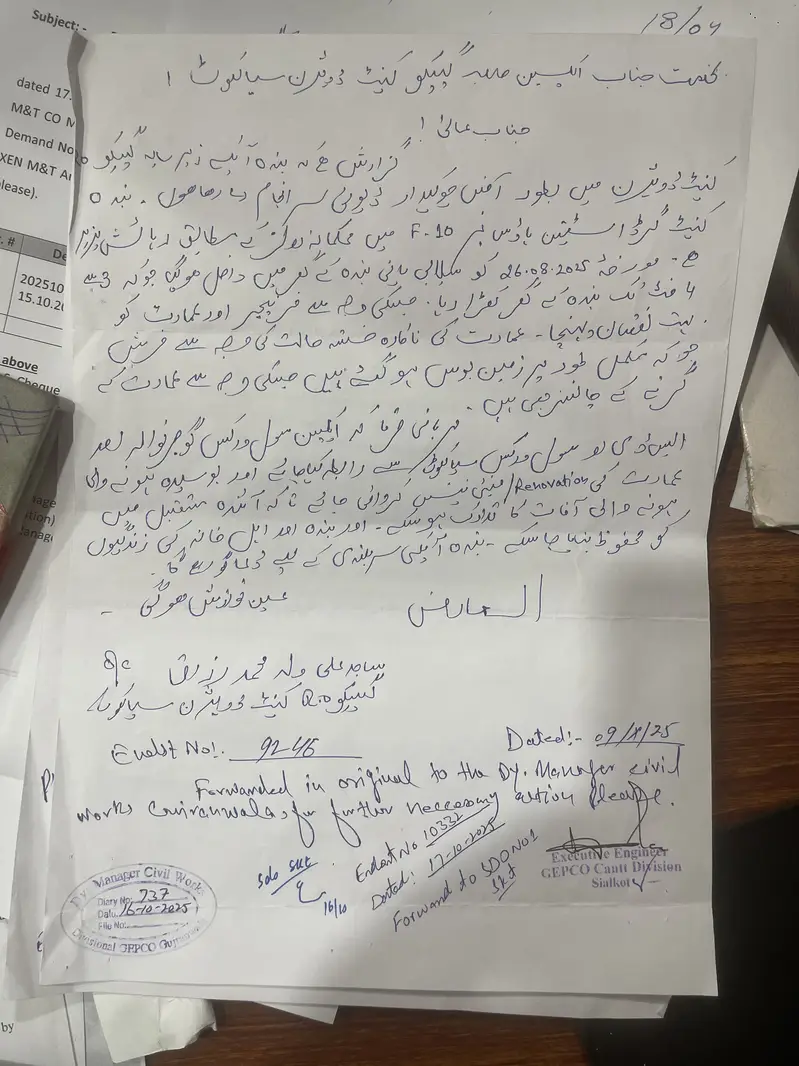 18/04
Subject:-
dated 17.
M&T CO M
Demand No
XEN M&T A
lease).
. #
De
202510
15.10.20
above
Cheque
nage
tion)
anag
by
بخدمت جناب ایکسین صاحب گیپکو کینٹ ڈویژن سیالکوٹ !
جناب عالی !
گزارش ہے کہ بندہ آپکے زیر سایہ گیپکو
کینٹ ڈویژن میں بطور آفس چوکیدار ڈیوٹی سر انجام دے رہا ہوں۔ بندہ
کینٹ گرڈ اسٹیشن ہاؤس نمبر F-10 میں محکمانہ رولز کے مطابق رہائش پذیر
ہے۔ مورخہ 26.08.2025 کو سیلابی پانی بندہ کے گھر میں داخل ہو گیا جو کہ 3 سے
4 فٹ تک بندہ کے گھر کھڑا رہا۔ جسکی وجہ سے فرنیچر اور عمارت کو
بہت نقصان پہنچا۔ عمارت کی ناکارہ خستہ حالت کی وجہ سے فرش
جو کہ مکمل طور پر زمین بوس ہو گئے ہیں جسکی وجہ سے عمارت کے
گرنے کے چانسز بھی ہیں۔
مہربانی فرما کر ایکسین سول ورکس گوجرانوالہ اور
ایس ڈی او سول ورکس سیالکوٹ سے رابطہ کیا جائے اور بوسیدہ ہونے والی
عمارت کی Renovation/ مینٹی نینس کروائی جائے تاکہ آئندہ مستقبل میں
ہونے والی آفات کا تدارک ہو سکے۔ اور بندہ اور اہل خانہ کی زندگیوں
کو محفوظ بنایا جا سکے۔ بندہ آپکی سربلندی کے لیے دعا گو رہے گا۔
عین نوازش ہو گی۔
العارض
ساجد علی ولد محمد رزیق
گیپکو کینٹ ڈویژن سیالکوٹ
Endst No:. 9246
Dated:- 09/X/25
Forwarded in original to the Dy. Manager civil
works Gujranwala, for further necessary action please.
Executive Engineer
GEPCO Cantt Division
Sialkot
Endost No 10332
Dated: 17-10-2025
Forward to SDO No 1
Skt
SDO SKT
16/10
Dy. Manager Civil Works
Diary No: 737
Date. 16-10-2025
File No:
Divisional GEPCO Gujranwala